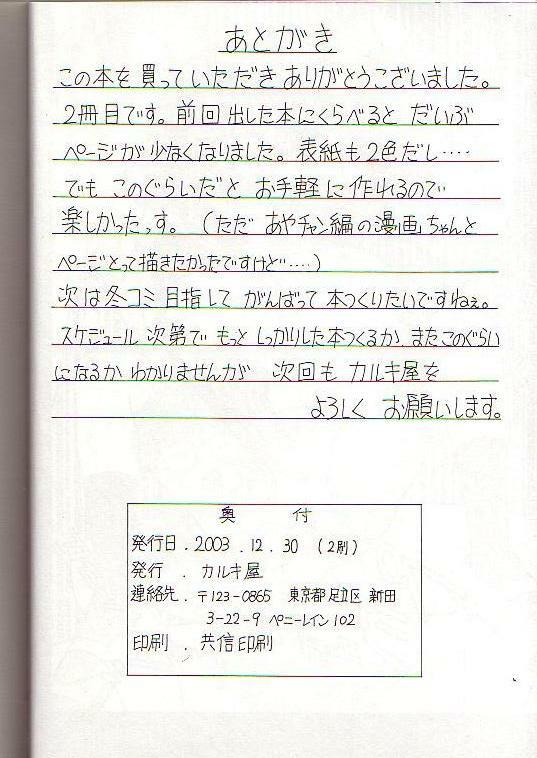 あとがき
この本を買っていただきありがとうございました。
2冊目です。前回出した本にくらべると だいぶ
ページが少なくなりました。表紙も2色だし‥‥
でも このぐらいだと お手軽に作れるので
楽しかったっす。(ただ あやチャン編の漫画ちゃんと
ページとって描きたかったですけど‥‥)
次は冬コミ目指して がんばって 本つくりたいですねぇ。
スケジュール 次第で もっと しっかりした本つくるか、またこのぐらい
になるか わかりませんが 次回も カルキ屋を
よろしく お願いします。
奥 付
発行日.2003.12.30 (2刷)
発行.カルキ屋
連絡先.〒123-0865 東京都足立区 新田
3-22-9 ペニーレイン102
印刷.共信印刷